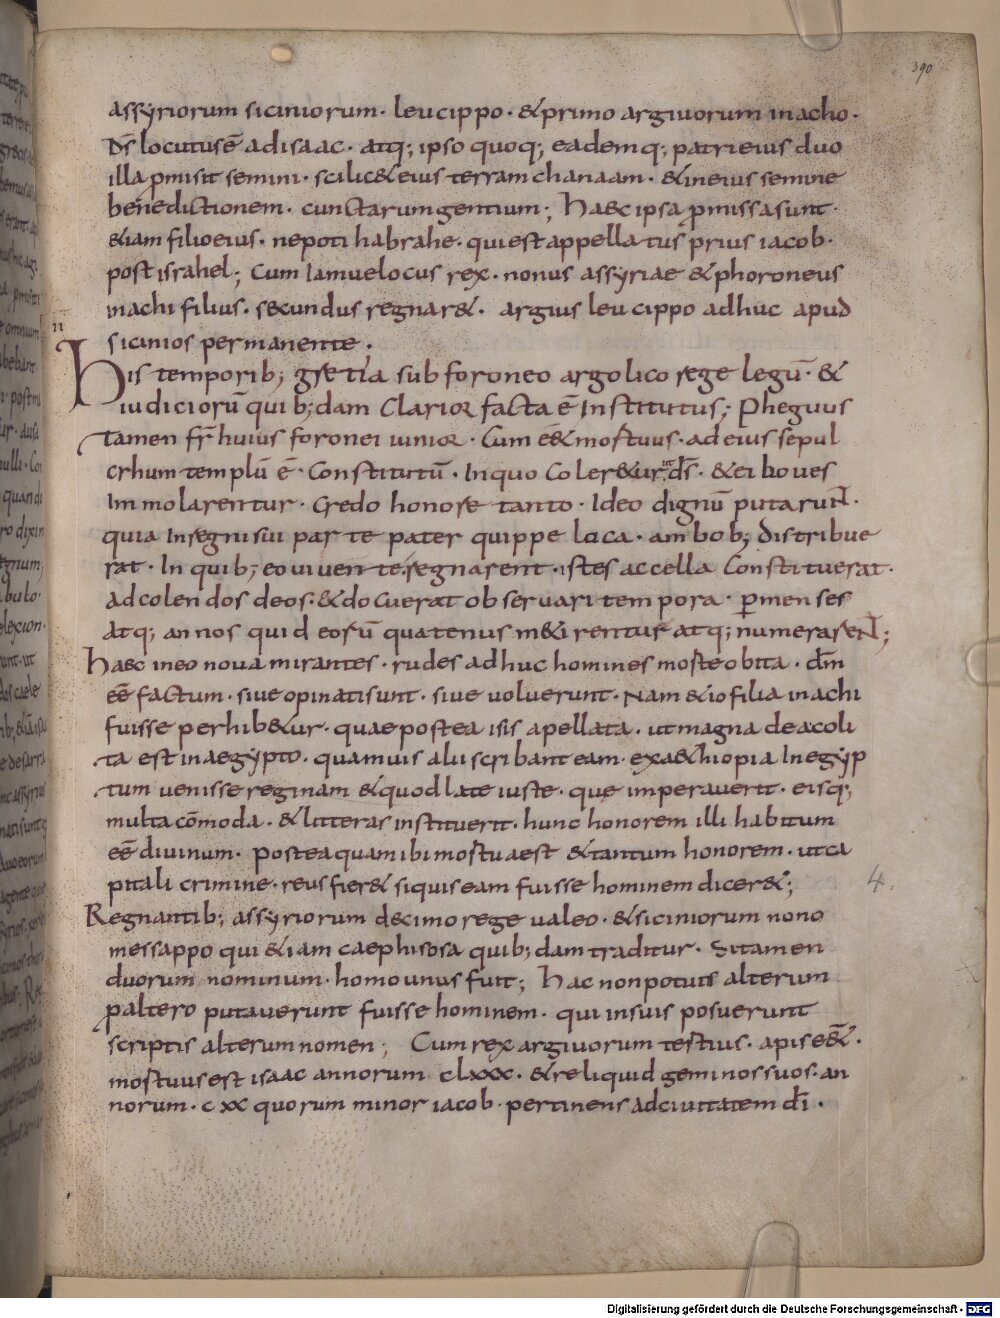 390
assyriorum siciniorum · leucippo · & primo argiuorum inacho ·
D̄s locutus ē ad isaac · atq; ipso quoq; eadem q; patri eius duo
illa pmisit semini · scilic& eius terram chanaam · & in eius semine
benedictionem · cunctarum gentium ; haec ipsa pmissa sunt ·
&iam filio eius · nepoti habrahe · qui est appellatus prius iacob ·
post israhel ; Cum iam uelocus rex · nonus assyriae & phoroneus
inachi filius · secundus regnar& · argius leucippo adhuc apud
sicinios permanente ·
II
His temporib; gretia sub foroneo argolico rege legū · &
iudiciorū quib;dam Clarior facta ē Institutus ; Pheguus
tamen fr̄ huius foronei iunior · Cum e&mortuus · ad eius sepul
crhum templū ē · Constitutū · In quo Coler&ur d̄s · & ei boues
Immolarentur · Credo honore tanto · Ideo dignū putaruN̄ ·
quia In regni sui parte pater quippe loca · ambob; distribue
rat · In quib; eo uiuente regnarent · istes accella Constituerat ·
ad colendos deos · & docuerat obseruari tempora · p menses
atq; annos quid eorū quatenus m&irentur atq; numerareN̄ ;
haec in eo noua mirantes · rudes adhuc homines morte obita · d̄m
eē factum · siue opinati sunt · siue uoluerunt · Nam & io filia inachi
fuisse perhib&ur · quae postea isis apellata · ut magna dea coli
ta est in aegypto · quamuis alii scribant eam · ex a&hiopia In egyp
tum uenisse reginam & quod late iuste · que imperauerit · eisq;
multa cōmoda · & litteras instituerit · hunc honorem illi habitum
eē diuinum · postea quam ibi mortua est & tantum honorem · ut ca
pitali crimine · reus fier& siquis eam fuisse hominem dicer& ;
4.
Regnantib; assyriorum decimo rege ualeo · & siciniorum nono
messappo qui &iam caephisosa quib;dam traditur · Si tamen
duorum nominum · homo unus fuit ; hac non potuis alterum
p altero putauerunt fuisse hominem · qui in suis posuerunt
scriptis alterum nomen ; Cum rex argiuorum tertius · apis e&̄ ·
mortuus est isaac annorum clxxx · & reliquid geminos suos · an
norum · cxx quorum minor iacob · pertinens ad ciuitatem d̄i ·
Digitalisierung gefördert durch die Deutsche Forschungsgemeinschaft - DFG